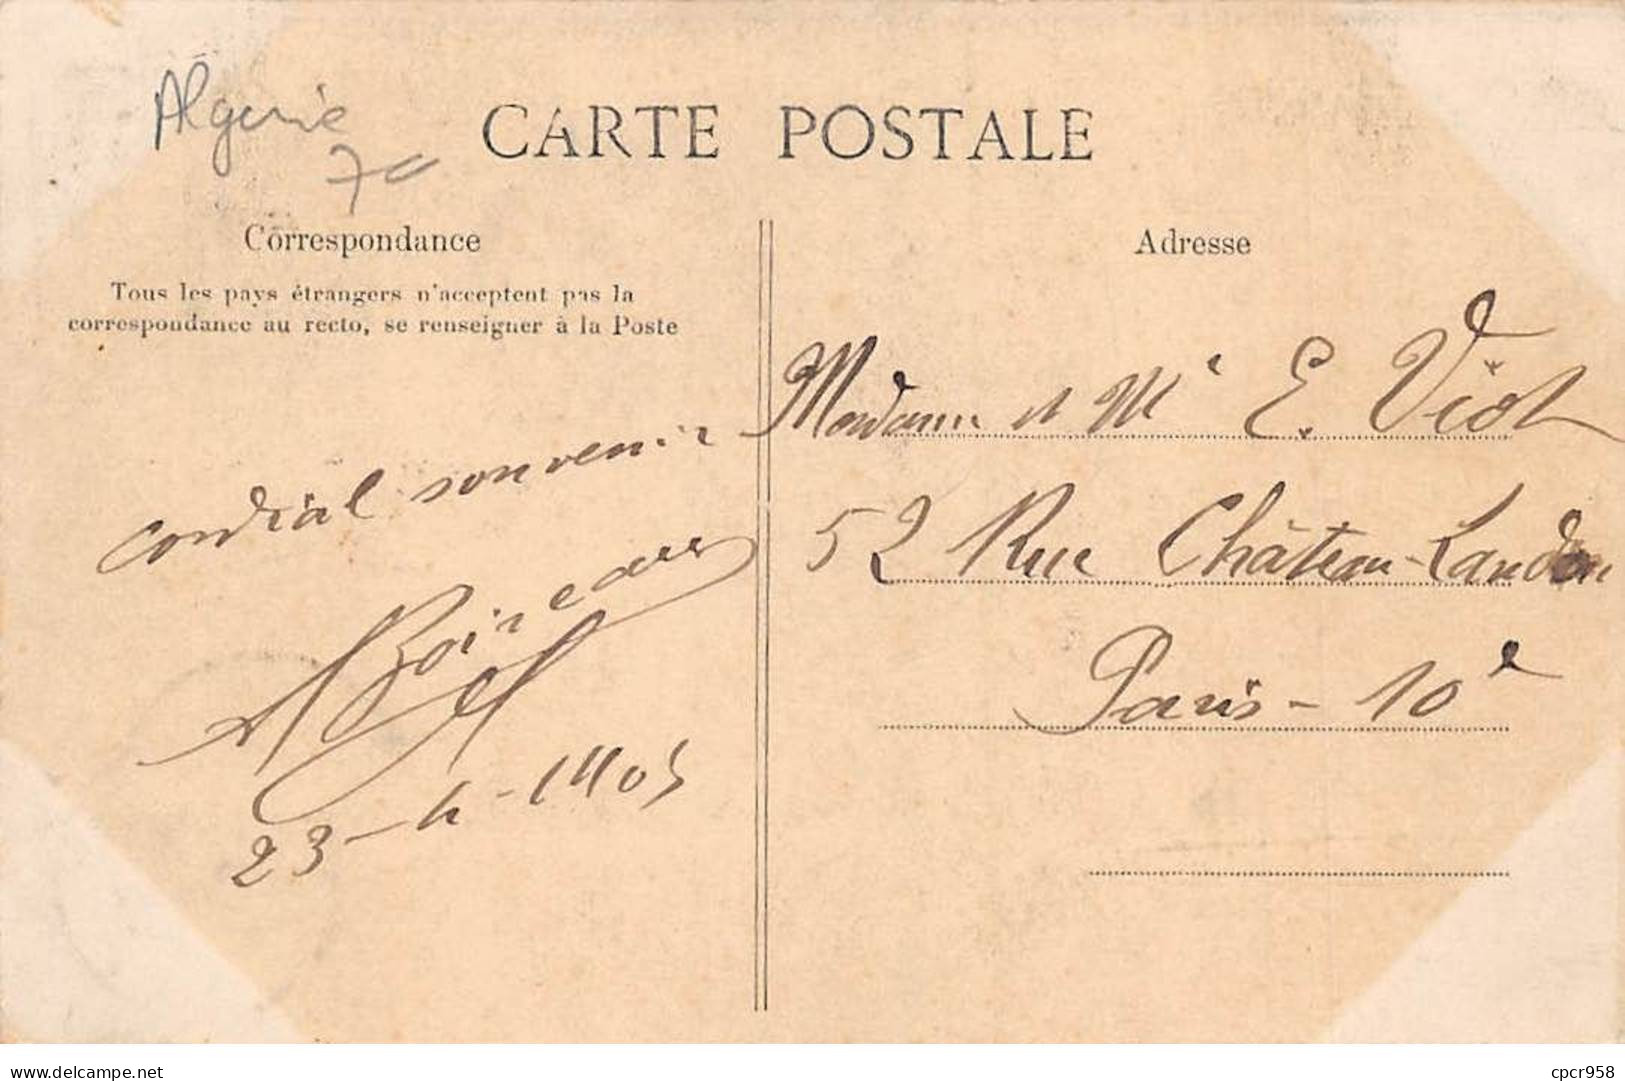 Algerie
70
CARTE POSTALE
Correspondance
Tous les pays étrangers n'acceptent pas la
correspondance au recto, se renseigner à la Poste
cordial souvenir
23-4-1905
Adresse
Madame et Mr E. Viot
52 Rue Château-Landon
Paris-10e
www.delcampe.net
cpcr958